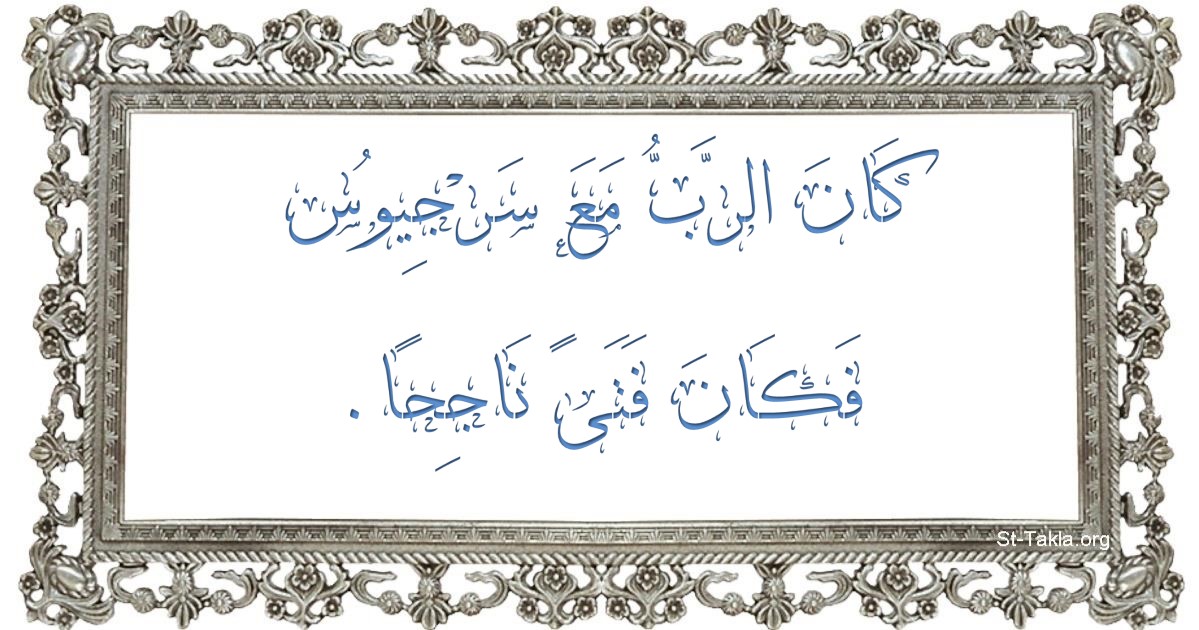 كَانَ الرَّبُّ مَعَ سَرْجِيوُس
فَكَانَ فَتَىً نَاجِحًا .
St-Takla.org